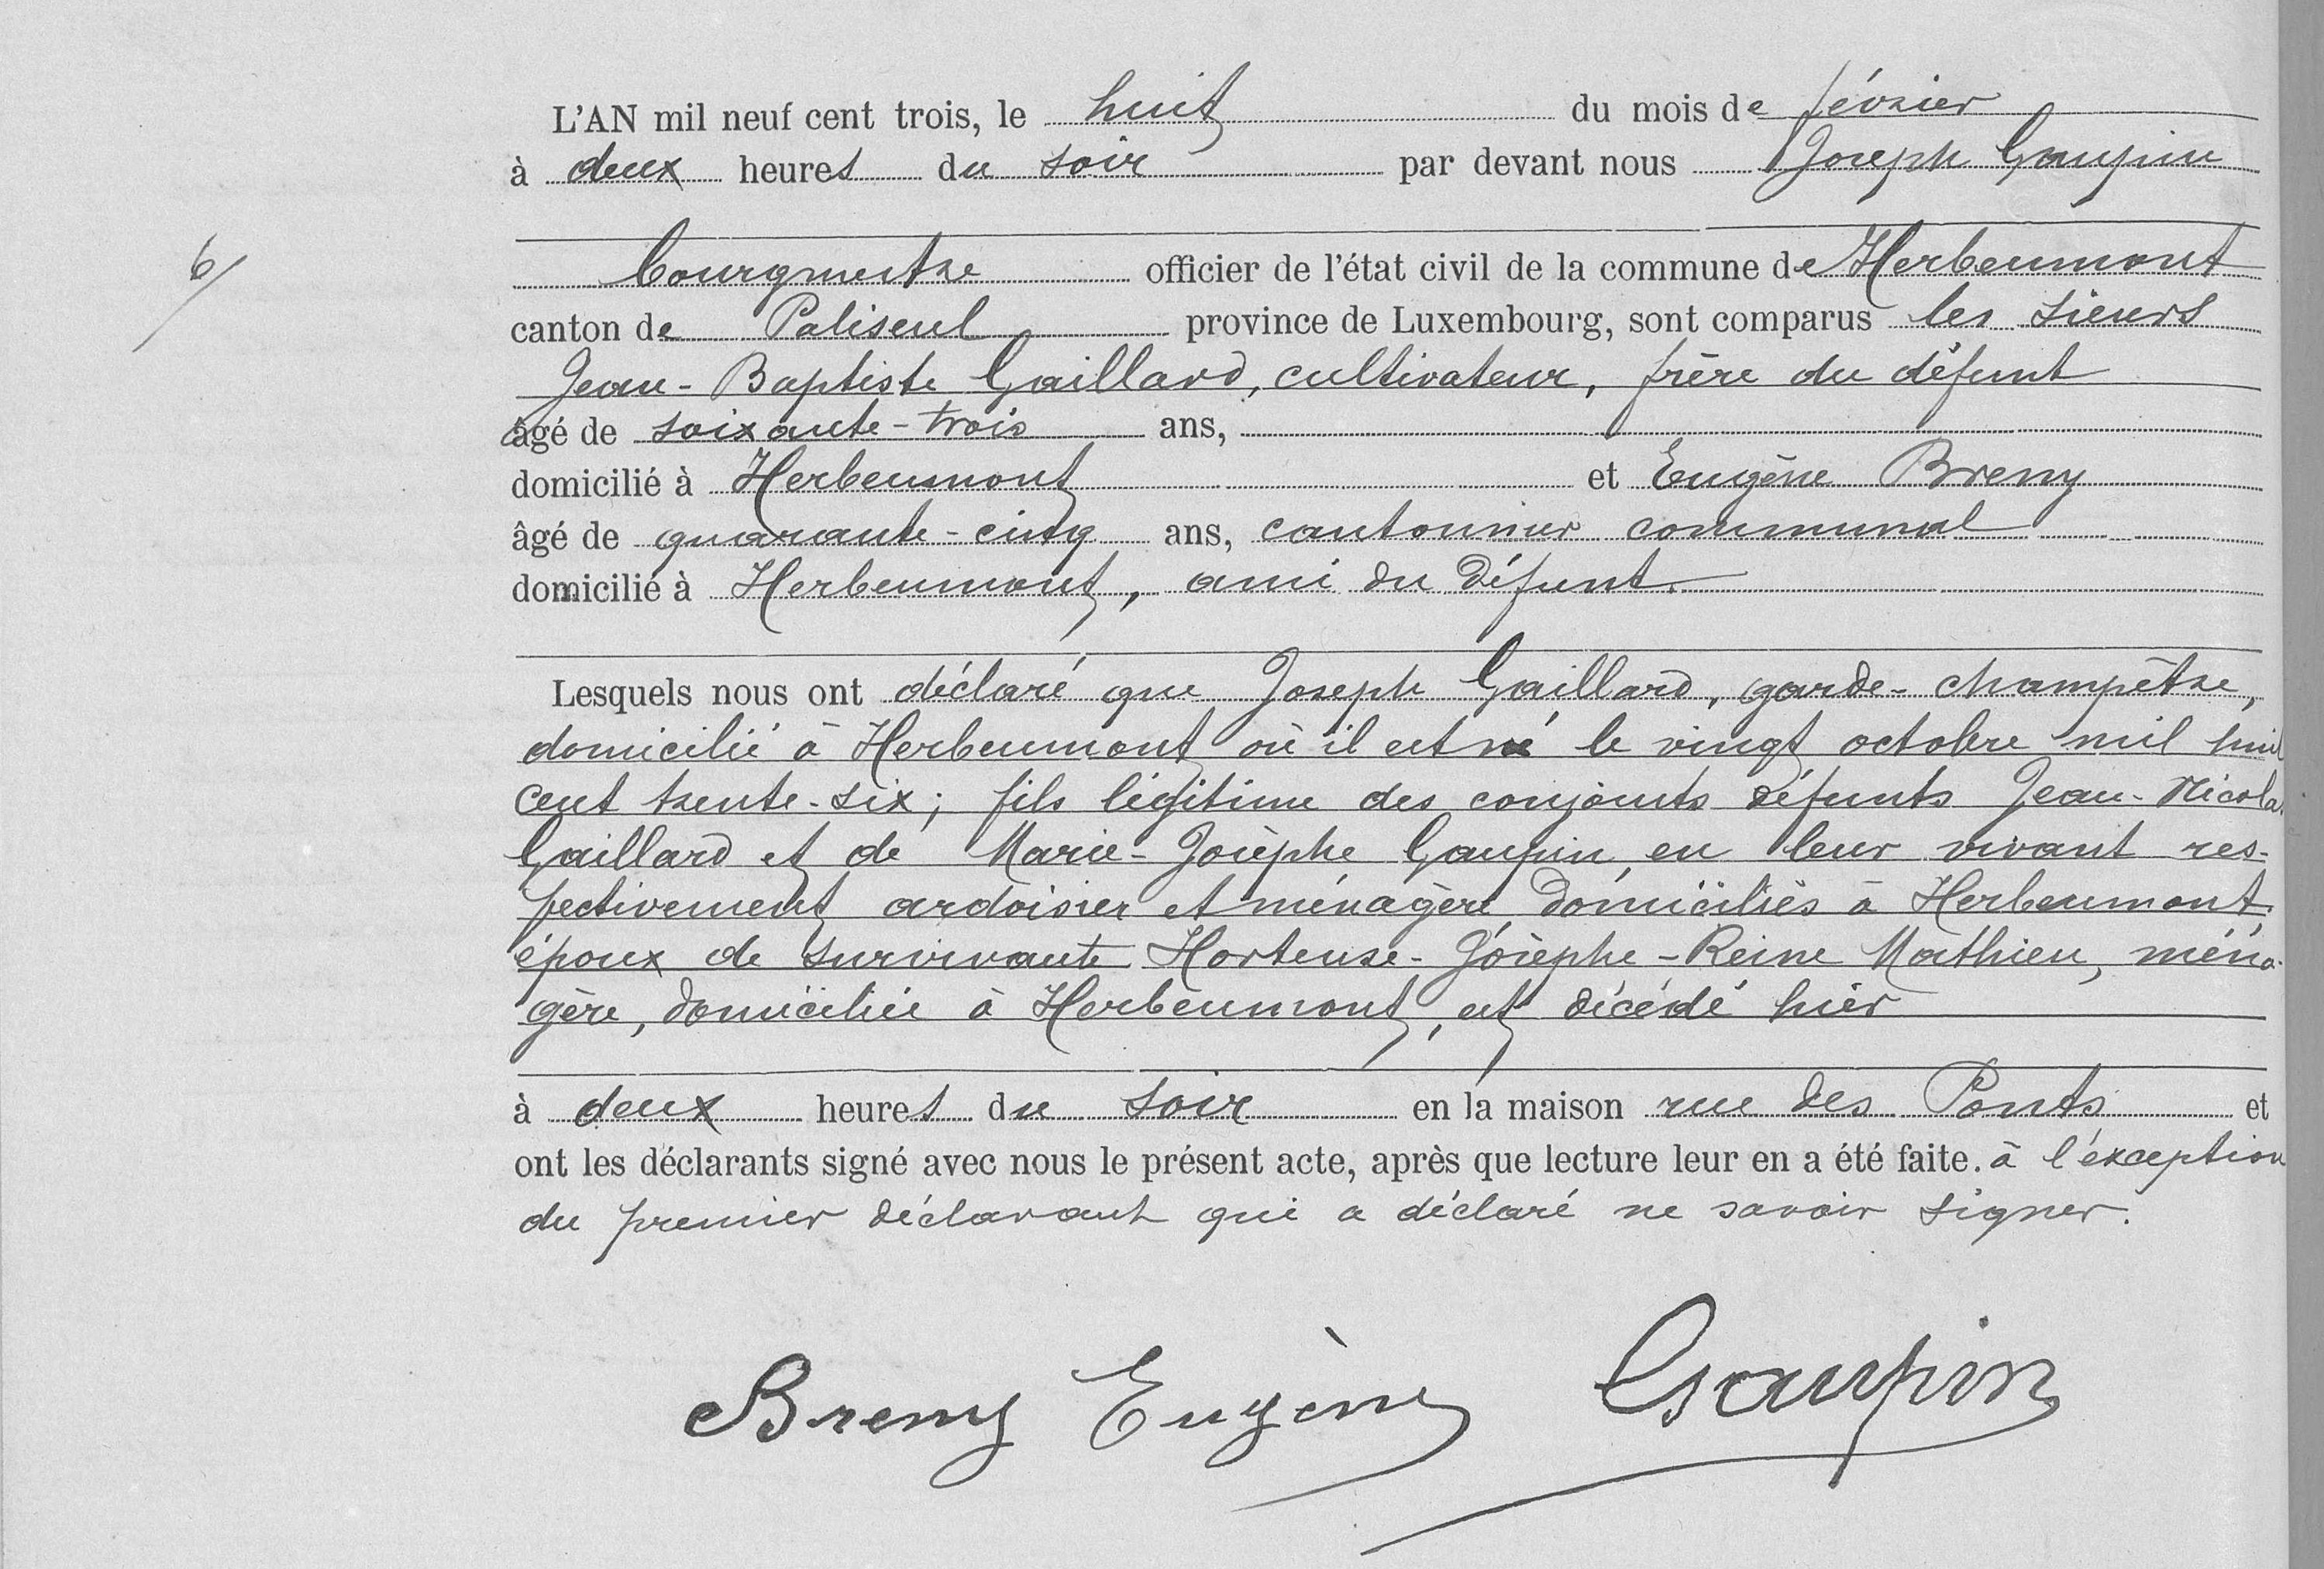 L'AN mil neuf cent trois, le huit du mois de février
à deux heures du soir par devant nous Joseph Gaupin
bourgmestre officier de l'état civil de la commune de Herbeumont
6/
canton de Paliseul province de Luxembourg, sont comparus les sieurs
Jean-Baptiste Gaillard, cultivateur, frère du défunt
âgé de soixante-trois ans,
domicilié à Herbeumont et Eugène Bremy
âgé de quarante-cinq ans, cantonnier communal
domicilié à Herbeumont, ami du défunt.
Lesquels nous ont déclaré que Joseph Gaillard, garde-champêtre,
domicilié à Herbeumont où il est né le vingt octobre mil huit
cent trente-six; fils légitime des conjoints défunts Jean-Nicolas
Gaillard et de Marie-Josèphe Gaupin, en leur vivant res-
pectivement ardoisier et ménagère domiciliés à Herbeumont,
époux de survivante Hortense-Josèphe-Reine Mathieu, ména-
gère, domiciliée à Herbeumont, est décédé hier
à deux heures du soir en la maison rue des Ponts et
ont les déclarants signé avec nous le présent acte, après que lecture leur en a été faite. à l'exception
du premier déclarant qui a déclaré ne savoir signer.
Bremy Eugène Gaupin